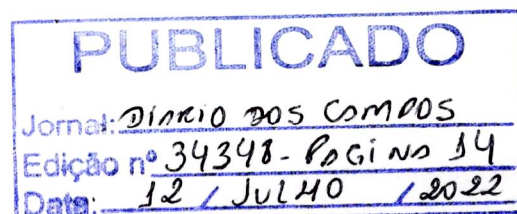 PUBLICADO
Jornal: DIARIO DOS CAMPOS
Edição nº 34348 - PAGINA 14
Data: 12 / JULHO / 2022